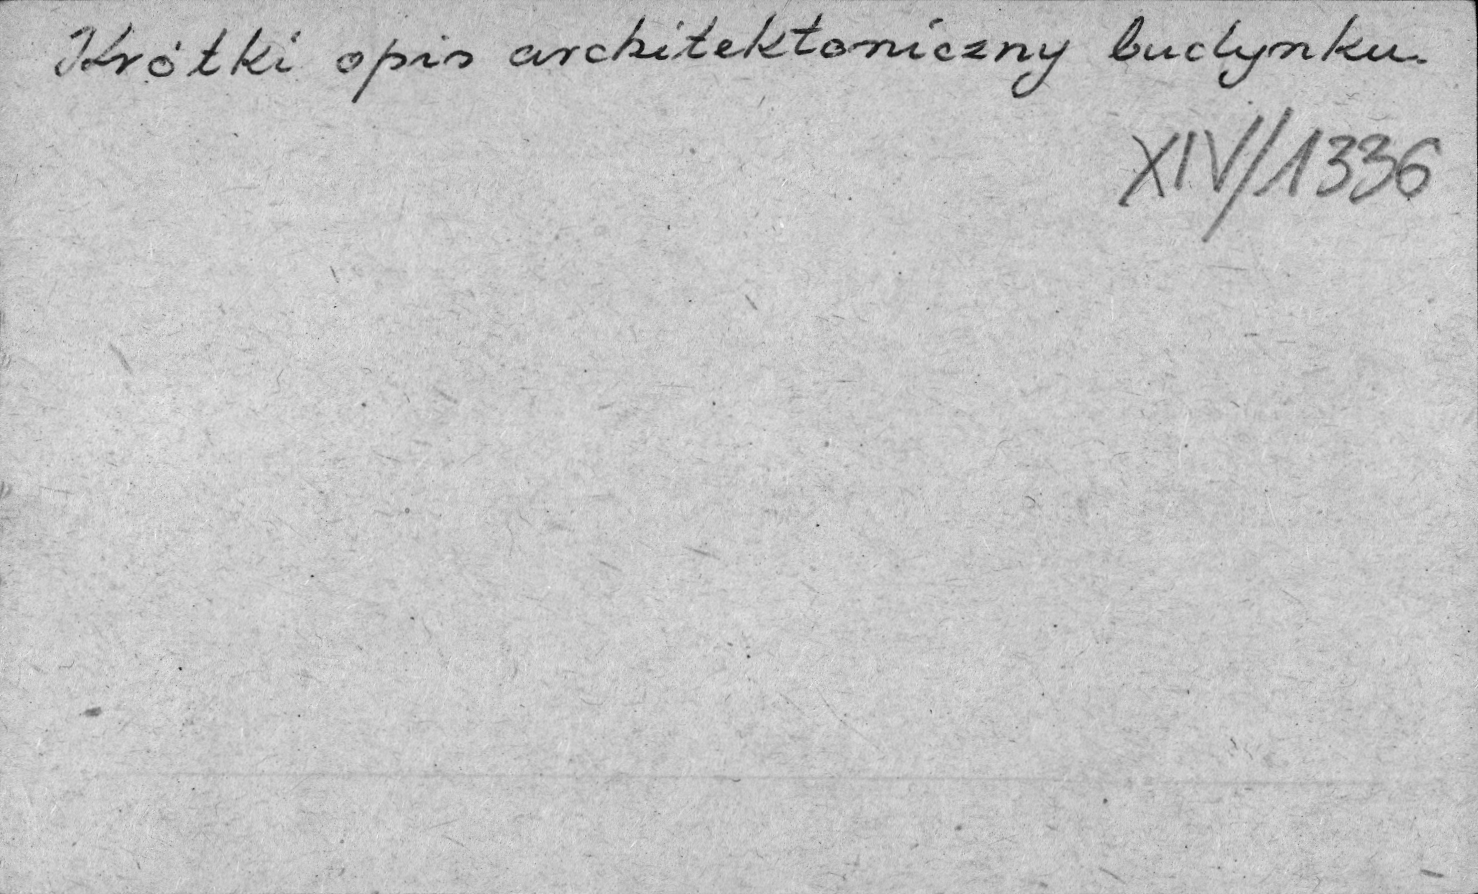 Krótki opis architektoniczny budynku.
XIV/1336